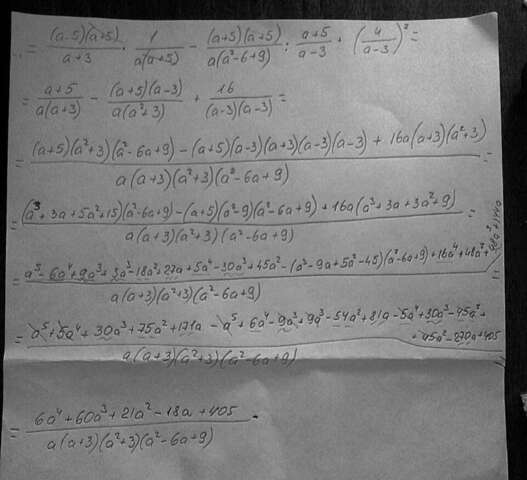 = (a-5)(a+5)/(a+3) · 1/(a(a+5)) - (a+5)(a+5)/(a(a²-6+9)) : (a+5)/(a-3) + (4/(a-3))² =
= (a+5)/(a(a+3)) - (a+5)(a-3)/(a(a²+3)) + 16/((a-3)(a-3)) =
= ((a+5)(a²+3)(a²-6a+9) - (a+5)(a-3)(a+3)(a-3)(a-3) + 16a(a+3)(a²+3))/(a(a+3)(a²+3)(a²-6a+9)) =
= ((a³+3a+5a²+15)(a²-6a+9)-(a+5)(a²-9)(a²-6a+9)+16a(a³+3a+3a²+9))/(a(a+3)(a²+3)(a²-6a+9)) =
= (a⁵-6a⁴+9a³+3a³-18a²+27a+5a⁴-30a³+45a²-(a³-9a+5a²-45)(a²-6a+9)+16a⁴+48a²+48a³+144a)/(a(a+3)(a²+3)(a²-6a+9)) =
= (a⁵+5a⁴+30a³+75a²+171a-a⁵+6a⁴-9a³+9a³-54a²+81a-5a⁴+30a³-45a²+45a²-270a+405)/(a(a+3)(a²+3)(a²-6a+9)) =
= (6a⁴+60a³+21a²-18a+405)/(a(a+3)(a²+3)(a²-6a+9)) .